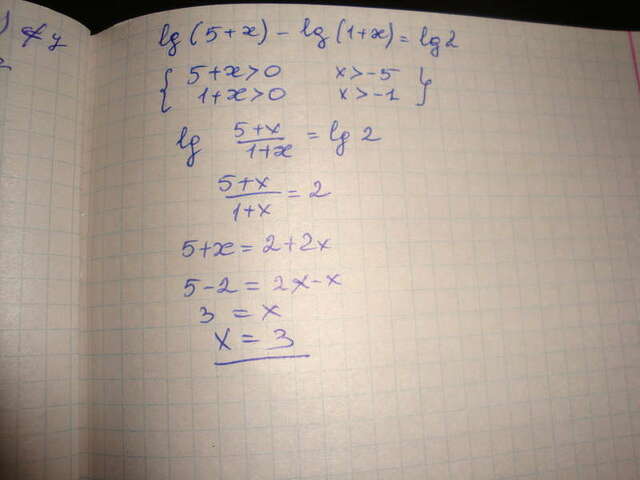 lg(5+x) - lg(1+x) = lg2
{ 5+x>0 x>-5
1+x>0 x>-1 }
lg \frac{5+x}{1+x} = lg 2
\frac{5+x}{1+x} = 2
5+x = 2+2x
5-2 = 2x-x
3 = x
x = 3